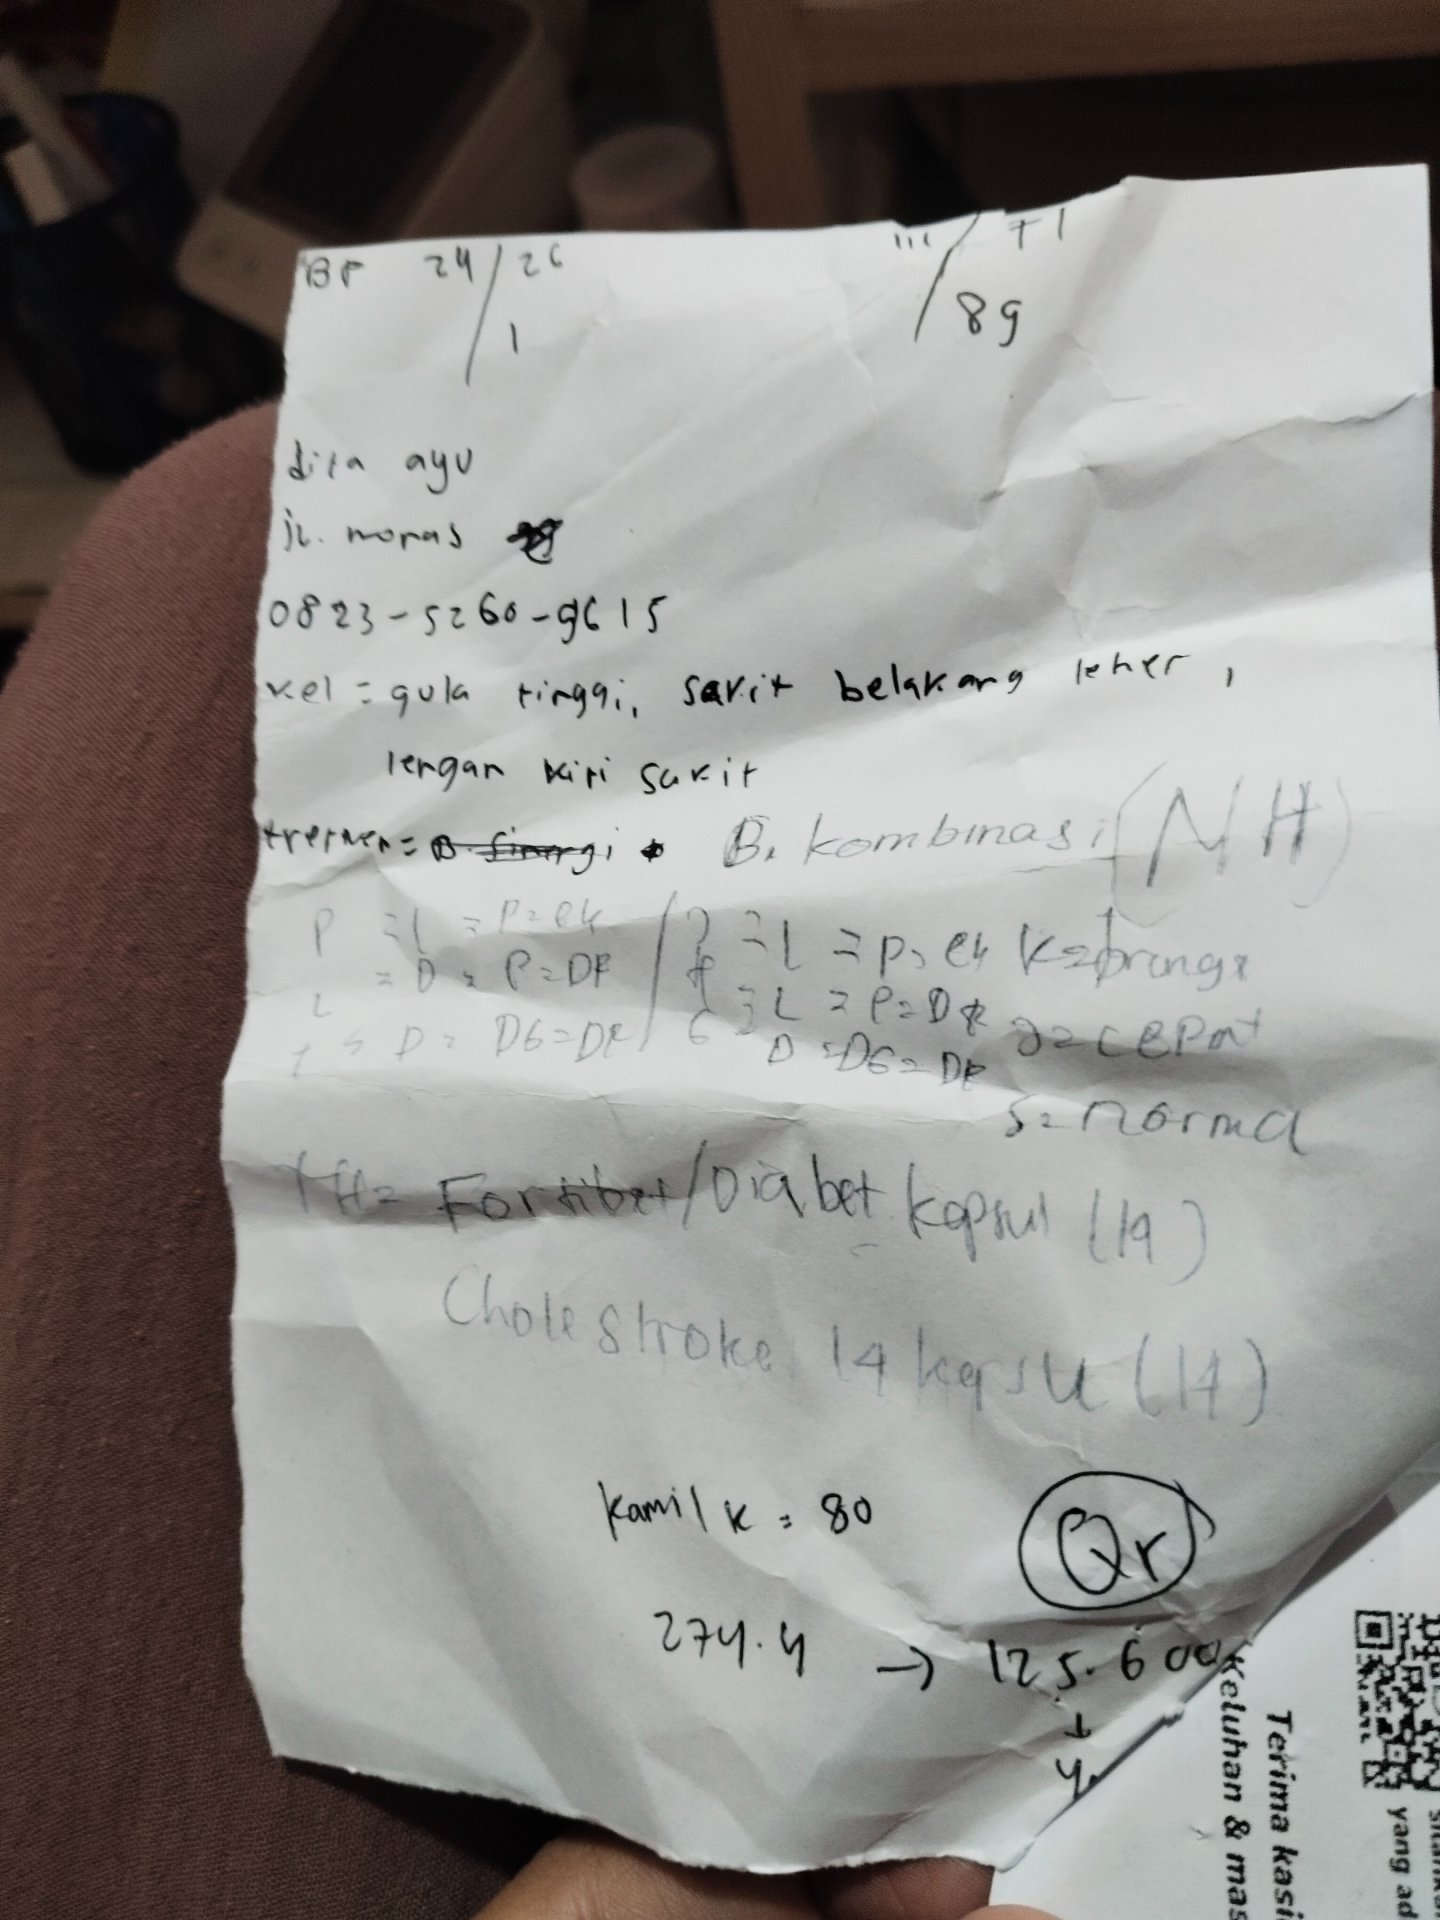 BP 24/26 111/71
/1 /89
dita ayu
jl. monas
0823-5260-9615
kel = gula tinggi, sakit belakang leher,
lengan kiri sakit
B. kombinasi (NH)
P = L = P = ek / = L = P = ek K =
= D = P = DF / = L = P = D = cepat
D = D6 = DF / 6 D = D6 = DF
S = normal
TH = Fortibet/Diabet kapsul (14)
Cholestroke 14 kapsul (14)
kamil k = 80 Qr
274.4 → 125.600
Terima kasi
Keluhan & mas
yang ad